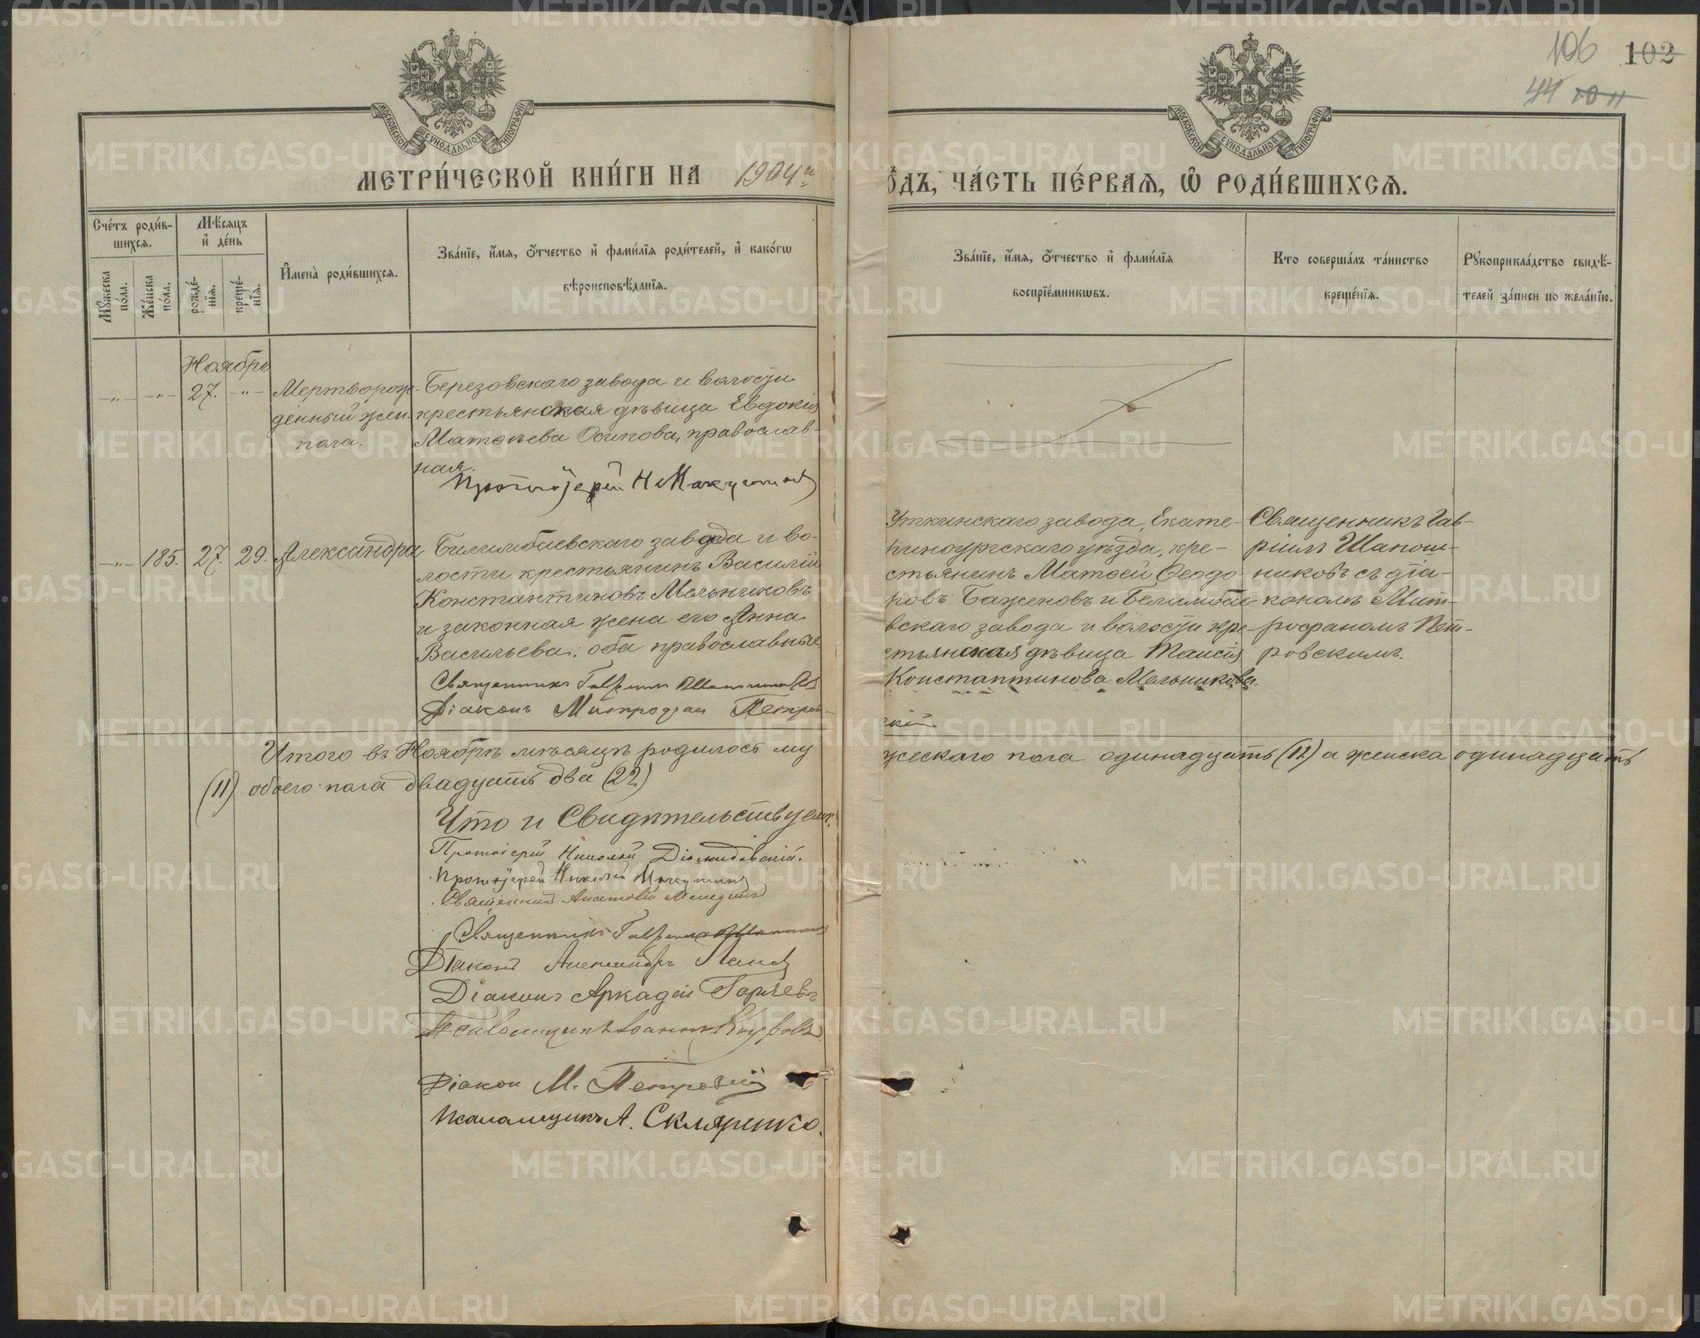 106 102
44
МОСКОВСКОЙ СѴНОДАЛЬНОЙ ТИПОГРАФІИ
МОСКОВСКОЙ СѴНОДАЛЬНОЙ ТИПОГРАФІИ
МЕТРИ́ЧЕСКОЙ КНИ́ГИ НА 1904 го́дъ, ЧА́СТЬ ПЕ́РВАЯ, Ѡ҆ РОДИ́ВШИХСЯ.
Сче́тъ роди́в-
шихся.
Мѣ́сяцъ
и҆ де́нь
Мꙋ́жеска по́ла.
Же́нска по́ла.
рожде́-
нїя.
креще́-
нїя.
И҆мена̀ роди́вшихся.
Зва́нїе, и҆́мя, ѻ҆́тчество и҆ фами́лїя роди́телей, и҆ како́гѡ
вѣроисповѣ́данїя.
Зва́нїе, и҆́мя, ѻ҆́тчество и҆ фами́лїя
воспрїе́мникѡвъ.
Кто соверша́лъ та́инство
креще́нїя.
Рꙋкоприкла́дство свидѣ́-
телей за́писи по жела́нїю.
Ноябрь
27. Мертворож-
денный жен.
пола.
Березовскаго завода и волости
крестьянская дѣвица Евдокія
Матѳѣева Осипова, православ-
ная.
Протоіерей Н Макушинъ
185. 27. 29. Александра
Билимбаевскаго завода и во-
лости крестьянинъ Василій
Константиновъ Мельниковъ
и законная жена его Анна
Васильева, оба православные
Священникъ Гавріилъ Шапошниковъ
Діаконъ Митрофан Петров-
скій
Уткинскаго завода, Екате-
ринбургскаго уѣзда, кре-
стьянинъ Матѳей Ѳеодо-
ровъ Баженовъ и Белимбае-
вскаго завода и волости кре-
стьянская дѣвица Таисія
Константинова Мельникова.
Священникъ Гав-
ріилъ Шапош-
никовъ съ діа-
кономъ Мит-
рофаномъ Пет-
ровскимъ.
Итого въ Ноябрѣ мѣсяцѣ родилось мужескаго пола одинадцать (11) а женска одинадцать
(11) обоего пола двадцать два (22)
Что и Свидѣтельствуемъ:
Протоіерей Николай Діомидовскій.
Протоіерей Николай Макушинъ
Священникъ Анатолій
Священникъ Гавріилъ Шапошниковъ
Діаконъ Александръ Поповъ
Діаконъ Аркадій Горяевъ
Псаломщикъ Іоаннъ
Діакон М. Петровскій
Псаломщикъ А. Скляренко.
METRIKI.GASO-URAL.RU